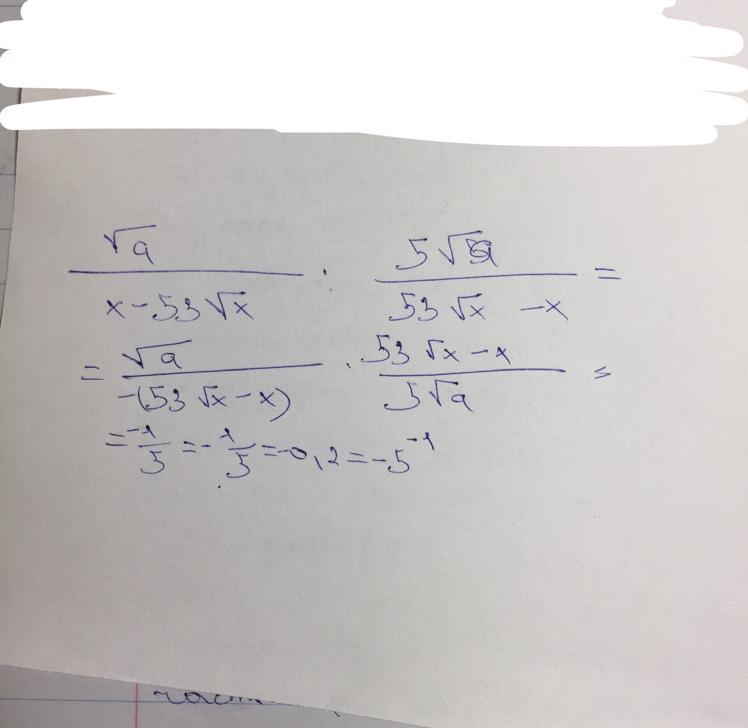 √a / (x - 53√x) : 5√a / (53√x - x) =
= √a / -(53√x - x) · (53√x - x) / 5√a =
= -1/5 = -1/5 = -0,2 = -5⁻¹